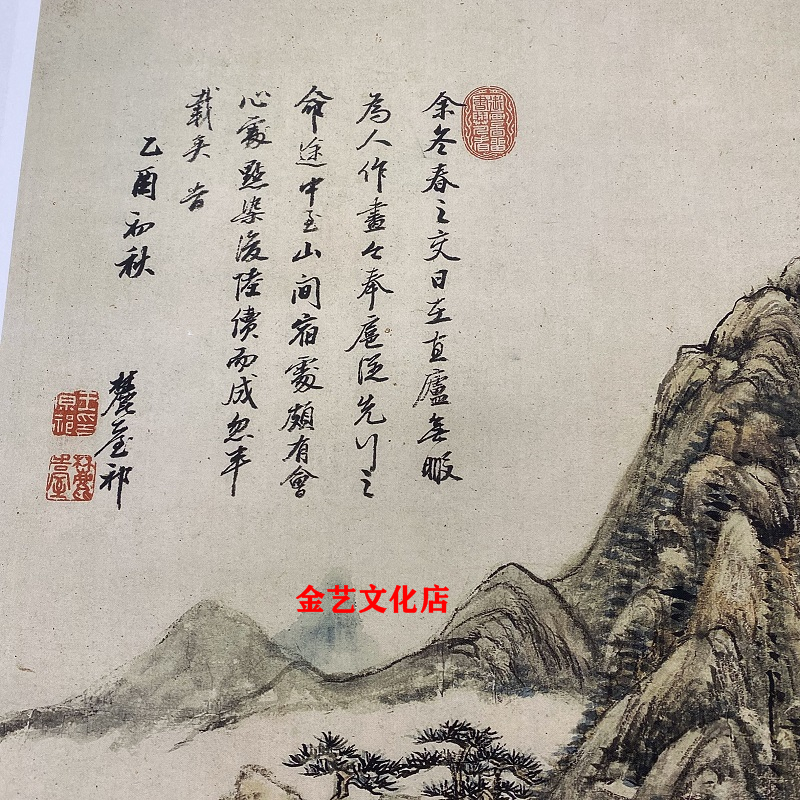 余冬春之交日在直廬無暇
為人作畫今奉扈從先行之
命途中至山間宿處頗有會
心處點染後陸續而成忽半
載矣 旹
乙酉初秋
麓臺祁
王原祁印
麓臺
金艺文化店